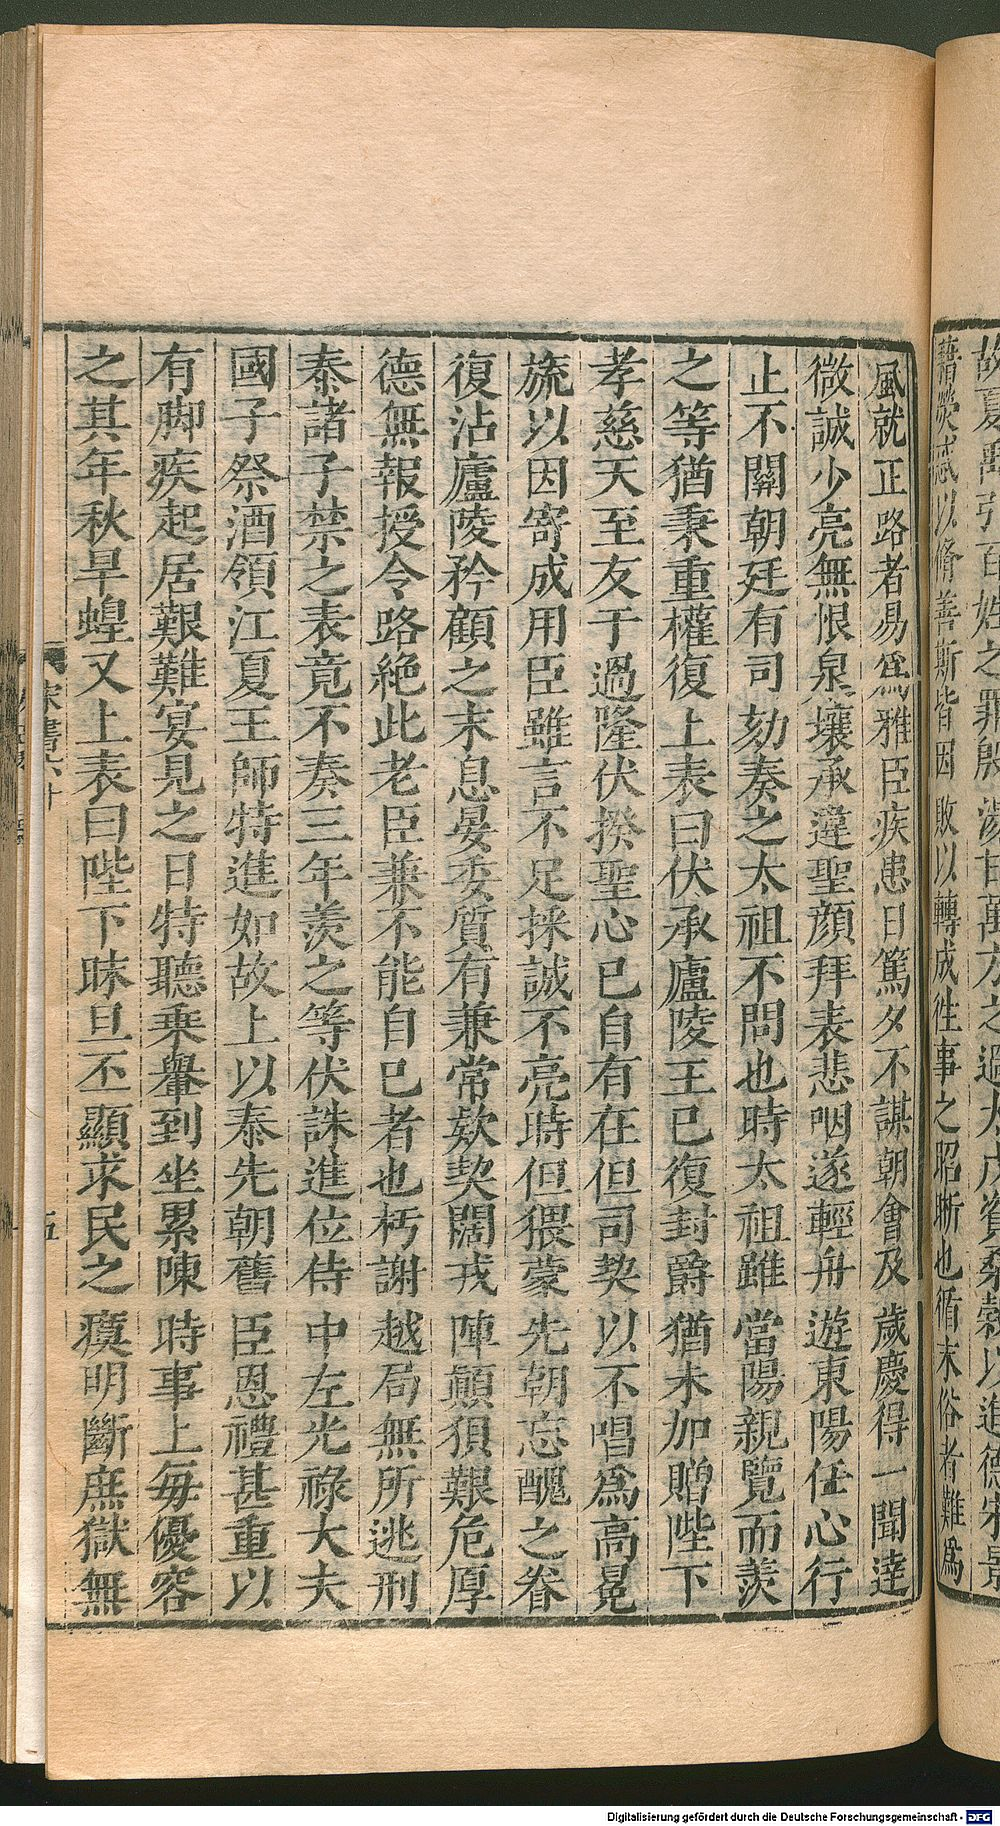 故夏禹引百姓之罪殷湯甘萬方之過太戊資桑穀以進德宋景
藉熒惑以脩善斯皆因敗以轉成往事之昭晰也循末俗者難爲
風就正路者易爲雅臣疾患日篤夕不謀朝會及歲慶得一聞達
微誠少亮無恨泉壤承違聖顏拜表悲咽遂輕舟遊東陽任心行
止不關朝廷有司劾奏之太祖不問也時太祖雖當陽親覽而羨
之等猶秉重權復上表曰伏承廬陵王已復封爵猶未加贈陛下
孝慈天至友于過隆伏揆聖心已自有在但司契以不唱爲高冕
旒以因寄成用臣雖言不足採誠不亮時但猥蒙先朝忘醜之眷
復沾廬陵矜顧之末息晏委質有兼常欵契闊戎陣顛狽艱危厚
德無報授令路絶此老臣兼不能自已者也朽謝越局無所逃刑
泰諸子禁之表竟不奏三年羨之等伏誅進位侍中左光祿大夫
國子祭酒領江夏王師特進如故上以泰先朝舊臣恩禮甚重以
有脚疾起居艱難宴見之日特聽乗轝到坐累陳時事上每優容
之其年秋旱蝗又上表曰陛下昧旦丕顯求民之瘼明斷庶獄無
宋書六十
五
Digitalisierung gefördert durch die Deutsche Forschungsgemeinschaft - DFG